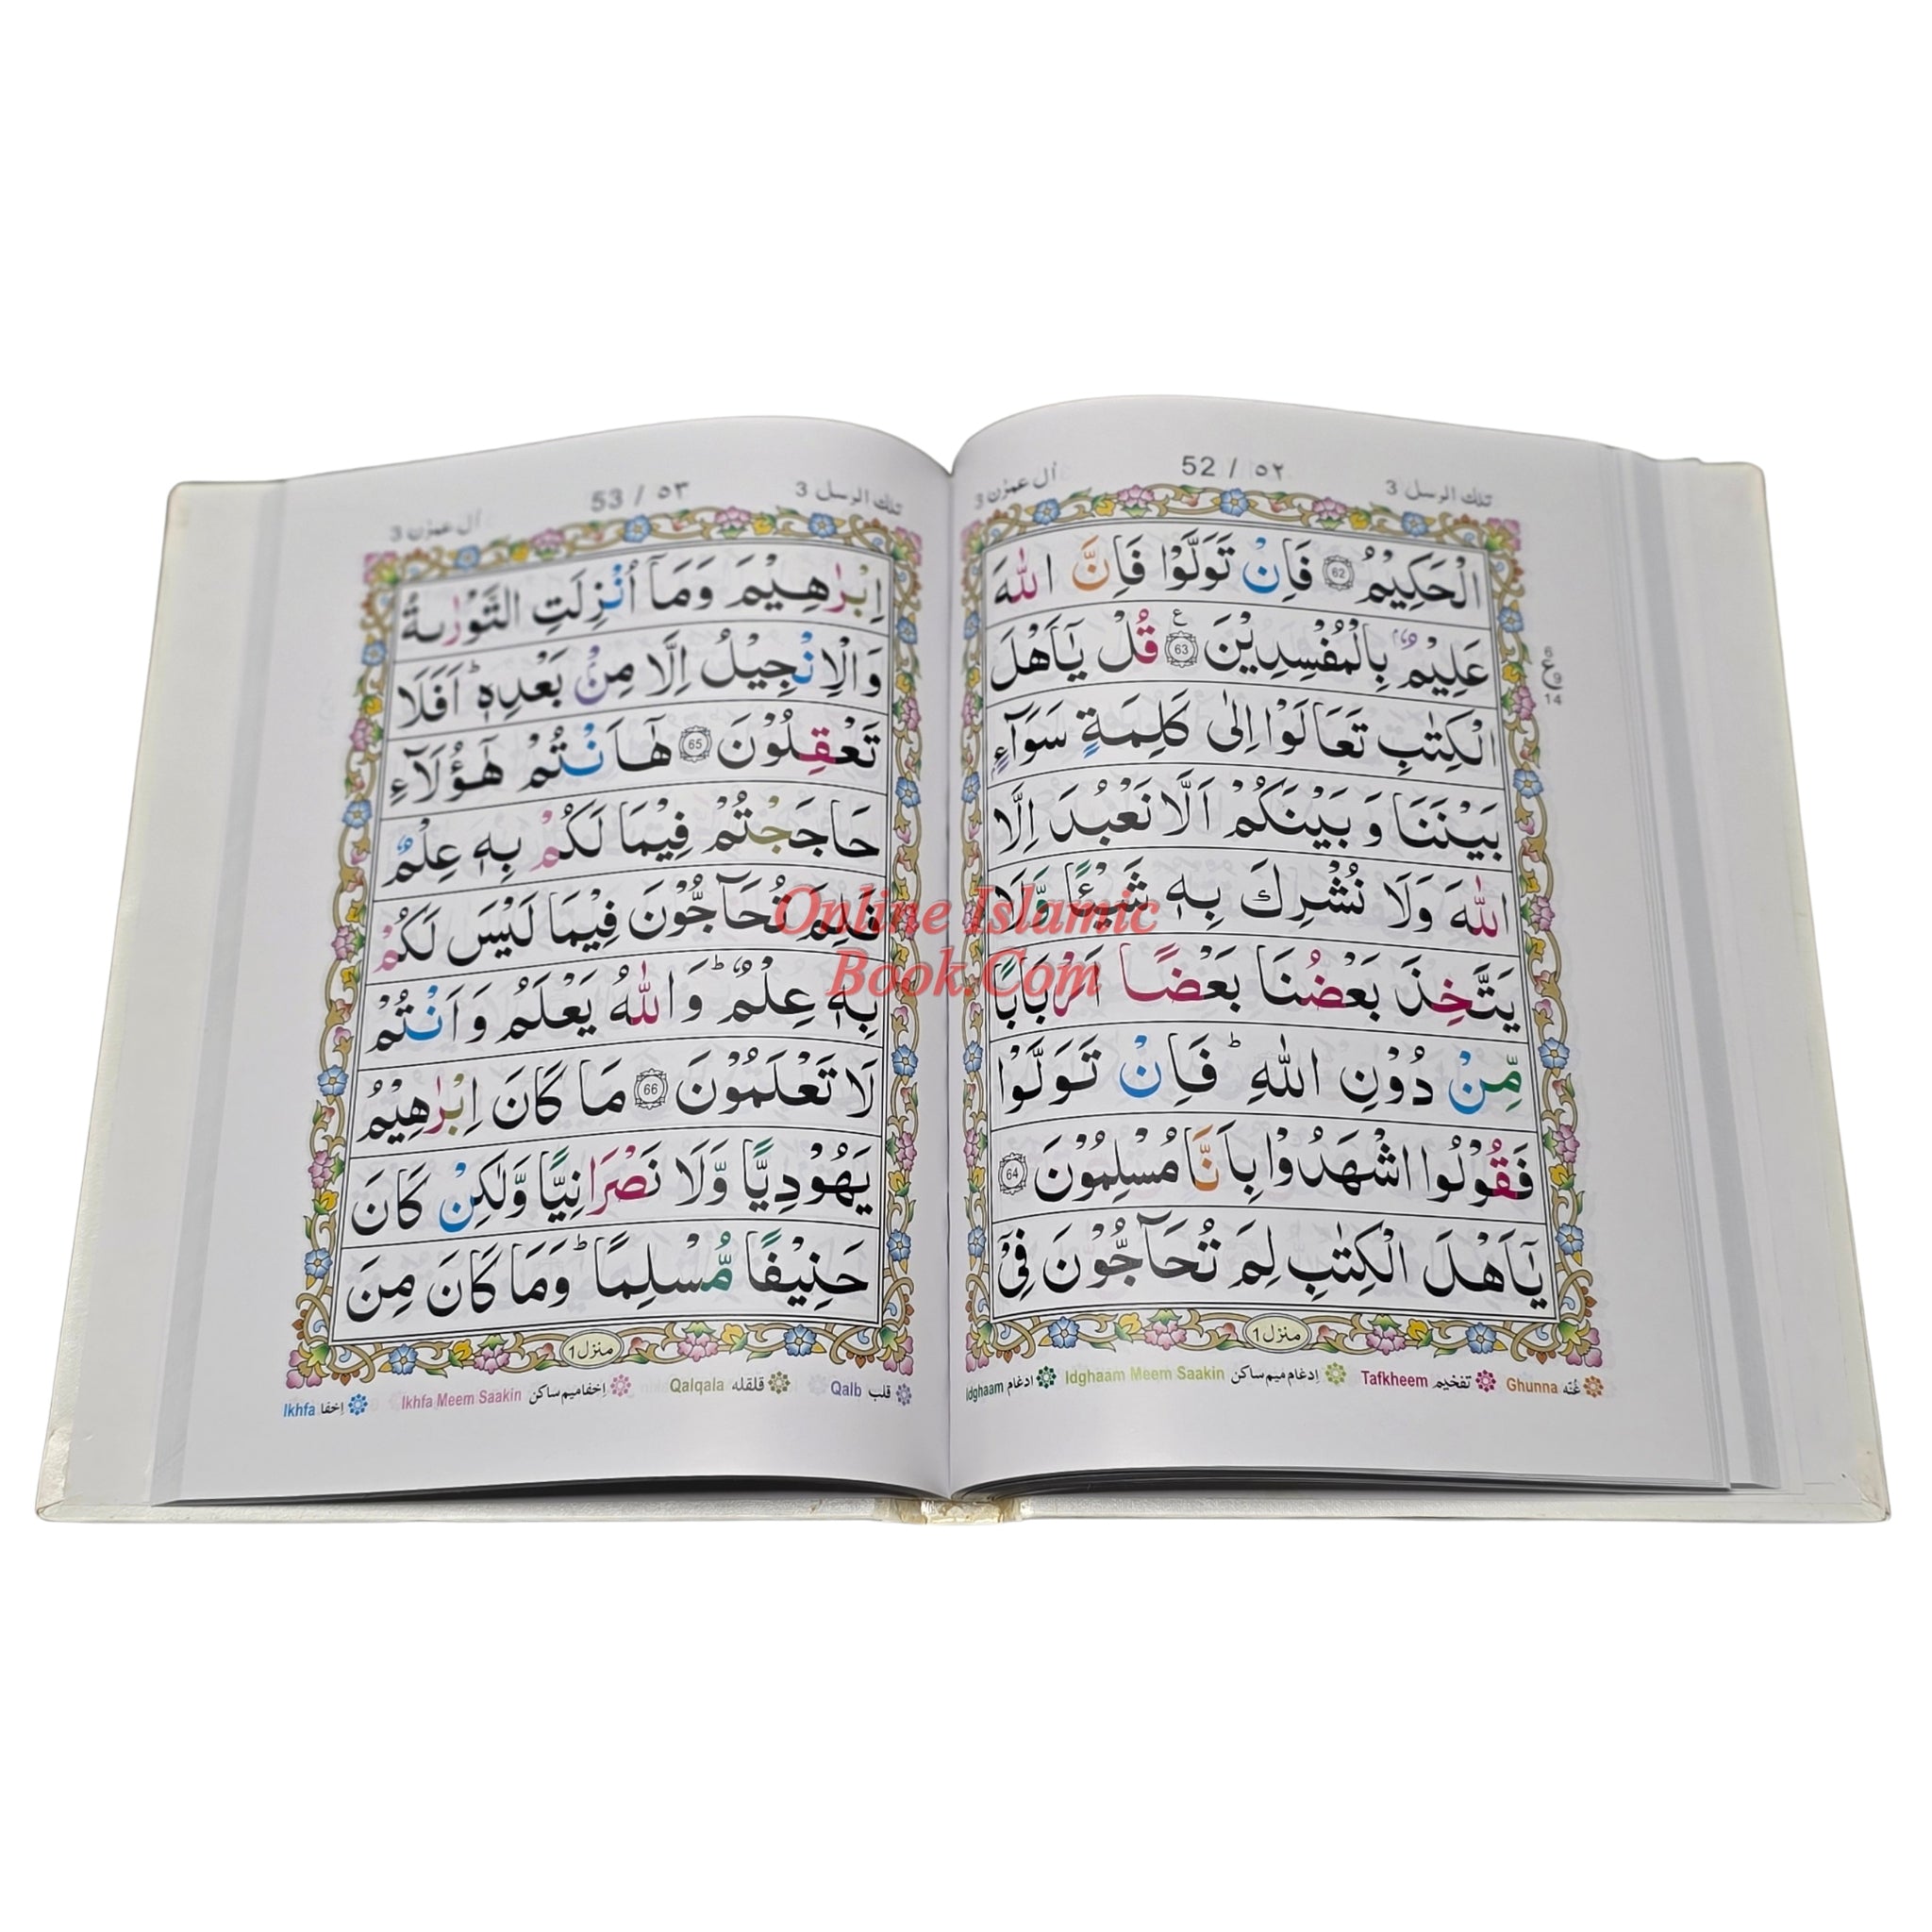 آل عمرٰن 3
52 / ٥٢
تلك الرسل 3
الْحَكِيْمُ 62 فَاِنْ تَوَلَّوْا فَاِنَّ اللّٰهَ
عَلِيْمٌۢ بِالْمُفْسِدِيْنَ 63 ع قُلْ يٰۤاَهْلَ
الْكِتٰبِ تَعَالَوْا اِلٰى كَلِمَةٍ سَوَآءٍۭ
بَيْنَنَا وَ بَيْنَكُمْ اَلَّا نَعْبُدَ اِلَّا
اللّٰهَ وَلَا نُشْرِكَ بِهٖ شَيْـًٔا وَّلَا
يَتَّخِذَ بَعْضُنَا بَعْضًا اَرْبَابًا
مِّنْ دُوْنِ اللّٰهِ ؕ فَاِنْ تَوَلَّوْا
فَقُوْلُوا اشْهَدُوْا بِاَنَّا مُسْلِمُوْنَ 64
يٰۤاَهْلَ الْكِتٰبِ لِمَ تُحَآجُّوْنَ فِيْۤ
6
ع 9
14
منزل 1
غُنّه Ghunna تفخيم Tafkheem اِدغام ميم ساكن Idghaam Meem Saakin ادغام Idghaam
آل عمرٰن 3
53 / ٥٣
تلك الرسل 3
اِبْرٰهِيْمَ وَمَاۤ اُنْزِلَتِ التَّوْرٰىةُ
وَالْاِنْجِيْلُ اِلَّا مِنْۢ بَعْدِهٖ ؕ اَفَلَا
تَعْقِلُوْنَ 65 هٰۤاَنْتُمْ هٰۤؤُلَآءِ
حَاجَجْتُمْ فِيْمَا لَكُمْ بِهٖ عِلْمٌ
فَلِمَ تُحَآجُّوْنَ فِيْمَا لَيْسَ لَكُمْ
بِهٖ عِلْمٌ ؕ وَاللّٰهُ يَعْلَمُ وَاَنْتُمْ
لَا تَعْلَمُوْنَ 66 مَا كَانَ اِبْرٰهِيْمُ
يَهُوْدِيًّا وَّلَا نَصْرَانِيًّا وَّلٰكِنْ كَانَ
حَنِيْفًا مُّسْلِمًا ؕ وَمَا كَانَ مِنَ
منزل 1
قلب Qalb قلقله Qalqala اِخفا ميم ساكن Ikhfa Meem Saakin اِخفا Ikhfa
Online Islamic
Book.Com